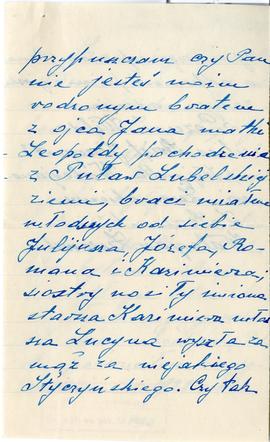 przypuszczam czy Pan
nie jesteś moim
rodzonym bratem
z ojca Jana matki
Leopoldy pochodzenia
z Puław Lubelskiej
ziemi, braci miałem
młodszych od siebie
Julijusza, Józefa, Ro-
mana i Kazimierza,
siostry nosiły imiona
starsza Kazimiera młod-
sza Lucyna wyszła za
mąż za niejakiego
Styczyńskiego. Czy tak